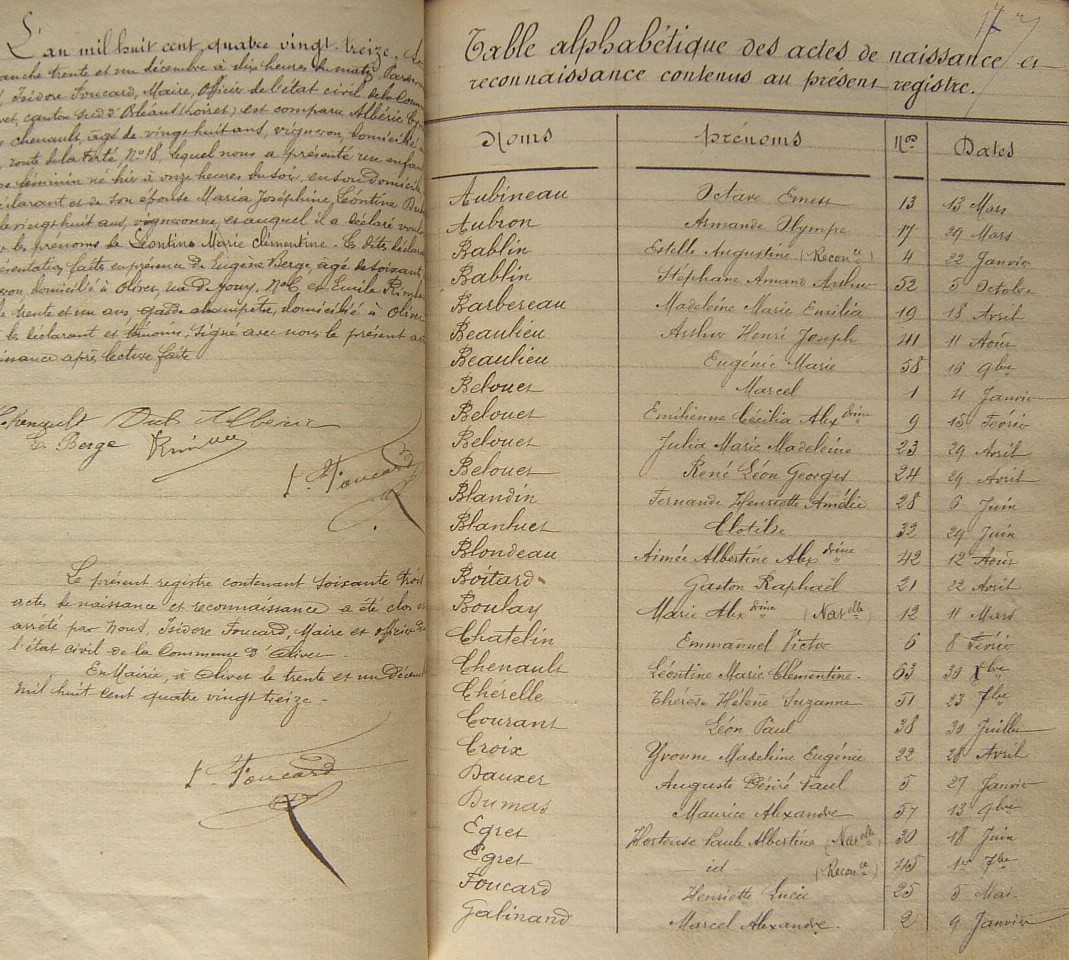 L'an mil huit cent quatre vingt treize,
anche trente et un décembre à dix heures du matin Par
Isidore Foucard, Maire, Officier de l'état civil de la Comm
et, canton sud d'Orléans (Loiret) est comparu Albéric
chenault, âgé de vingt huit ans, vigneron, domicilié
route de la Ferté No 18, lequel nous a présenté un enfan
féminin né hier à onze heures du soir, en son domicile
éclarant et de son épouse Maria Joséphine, Léontine
vingt huit ans, vigneronne, et auquel il a déclaré voulo
les prénoms de Léontine Marie Clémentine. Les dites déclara
ésentation faites en présence de Eugène Berge, âgé de soixant
domicilié à Olivet, et Emile
trente et un ans, garde champêtre, domicilié à Olive
le déclarant et témoins, signé avec nous le présent ac
issance après lecture faite
Chenault Albéric
E. Berge
I. Foucard
Le présent registre contenant soixante trois
actes de naissance et reconnaissance a été clos et
arrêté par Nous, Isidore Foucard, Maire et officier de
l'état civil de la Commune d'Olivet.
En Mairie, à Olivet le trente et un Décem
mil huit cent quatre vingt treize.
I. Foucard
17
Table alphabétique des actes de naissance et
reconnaissance contenus au présent registre.
Noms Prénoms Nos Dates
Aubineau Octave Ernest 13 13 Mars
Aubron Armande Olympe 17 29 Mars
Bablin Estelle Augustine (Reconce) 4 22 Janvier
Bablin Stéphane Amand Arthur 52 5 Octobre
Barbereau Madeleine Marie Emilia 19 18 Avril
Beaulieu Arthur Henri Joseph 41 11 Août
Beaulieu Eugénie Marie 58 16 9bre
Belouet Marcel 1 4 Janvier
Belouet Emilienne Cécilia Alexdrine 9 15 Févrir
Belouet Julia Marie Madeleine 23 29 Avril
Belouet René Léon Georges 24 29 Avril
Blandin Fernande Henriette Amélie 28 6 Juin
Blanluet Clotilde 32 29 Juin
Blondeau Aimée Albertine Alexdrine 42 12 Août
Boitard Gaston Raphaël 21 22 Avril
Boulay Marie Alexdrine (Natelle) 12 11 Mars
Chatelin Emmanuel Victor 6 8 Févrir
Chenault Léontine Marie Clémentine. 63 30 Xbre
Chérelle Thérèse Hélène Suzanne 51 23 7bre
Courant Léon Paul 38 30 Juillet
Croix Yvonne Madeleine Eugénie 22 28 Avril
Dauxer Auguste Désiré Paul 5 27 Janvier
Dumas Maurice Alexandre 57 13 9bre
Egret Hortense Paule Albertine (Natelle) 30 18 Juin
Egret id (Reconce) 45 1er 7bre
Foucard Henriette Lucie 25 5 Mai
Galinand Marcel Alexandre. 2 9 Janvier